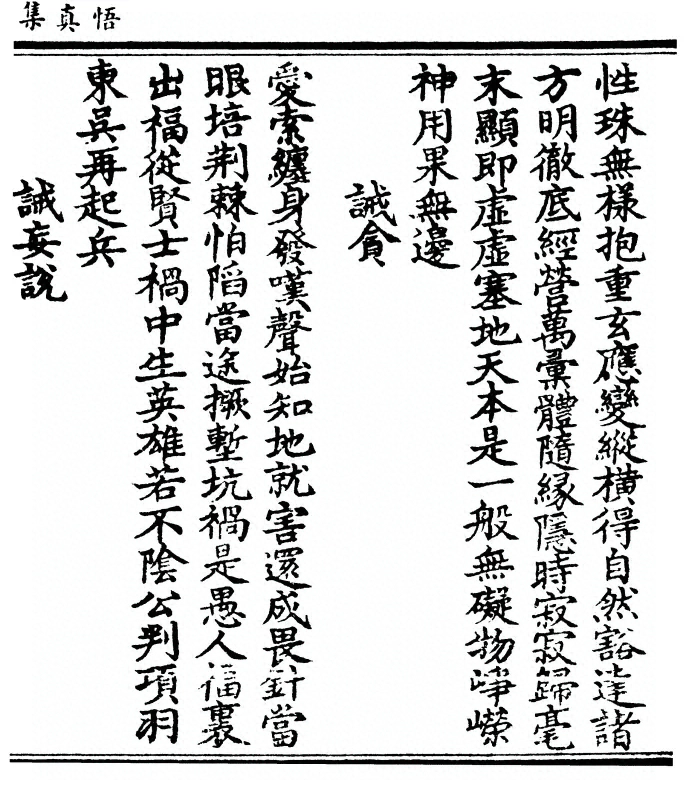 悟真集
性珠無樣抱重玄應變縱橫得自然豁達諸
方明徹底經營萬彙體隨緣隱時寂寂歸毫
末顯即虛虛塞地天本是一般無礙物崢嶸
神用果無邊
誡貪
愛索纏身發嘆聲始知地就害還成畏針當
眼培荆棘怕陷當途撅塹坑禍是愚人福裏
出福從賢士禍中生英雄若不陰公判項羽
東吳再起兵
誡妄說